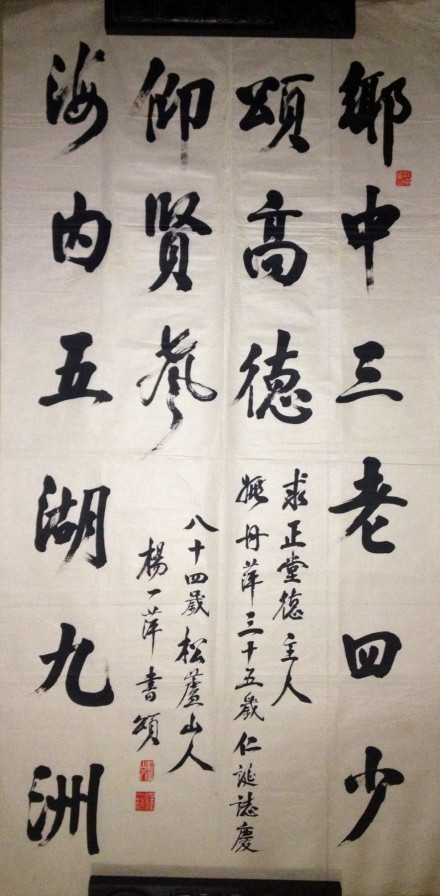 鄉中三老四少
頌高德
求正堂德主人
姚丹萍三十五歲仁誕誌慶
海内五湖九洲
仰賢風
八十四歲松蘆山人
楊一萍書頌